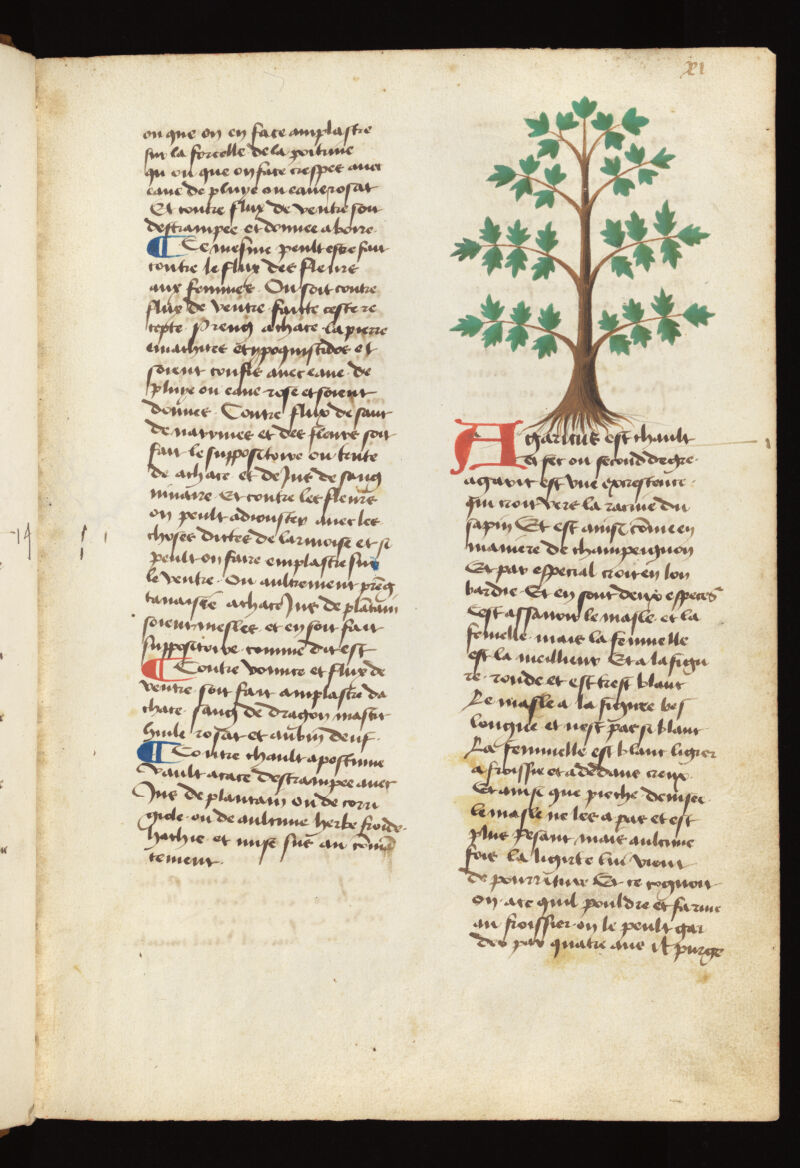 xi
ou que on en face amplastre
sur la forcelle de la poitrine
qu ou que on face crespes avec
eaue de pluye ou eaue rosat
Et contre flux de ventre soit
destrampee et donnee a boire
Ce mesme peult estre fait
contre le flux des fleurs
aux femmes. Ou soit contre
flux de ventre faicte ceste re
cepte. Prens achace la pierre
emathites et ypoquistidos et
soient confis avec eaue de
pluye ou eaue rose et soient
donnes. Contre flux de sanc
de narrines et des fleurs soit
fait le suppositoire ou tente
de achace et de Jus de sang
ninaire. Et contre les fleurs
on peult adiouster avec les
choses dictes de larmoise et si
peult on faire emplastre sur
le ventre. Ou aultrement prens
tanaisie achace Jus de plantain
soient mesles et en soit fait
suppositoire comme dit est
Contre vomite et flux de
ventre soit fait amplastre da
chace sang de dragon mastic
huile rosat et aubun deuf.
Contre chault apostume
vault acace destrampee avec
Jus de plantain ou de corri
giole ou de aulcune herbe froide
hachie et mise sus au comen
cement.
Agaricus est chault
et sec ou second degre.
agaric est vne excrescence
qui croit vers la racine du
sapin Et est ainsi come en
maniere de champeignon
Et par especial croit en lon
bardie. Et en sont deux especes
Cest assavoir le masle et la
femelle. mais la femmelle
est la meilleur. Et a la figu
re ronde et est tresblanc
Le masle a la figure bes
longue et nest pas si blanc
La femmelle est blanc ligier
a froissier et a dedans creux
Et ainsi que pieche devisee
le masle ne les a pas et est
plus pesant mais aulcune
fois la ligirte lui vient
de pourriture Et ce cognoit
on a ce quil pouldre et farine
au froissier on le peult gar
der par quatre ans it purge